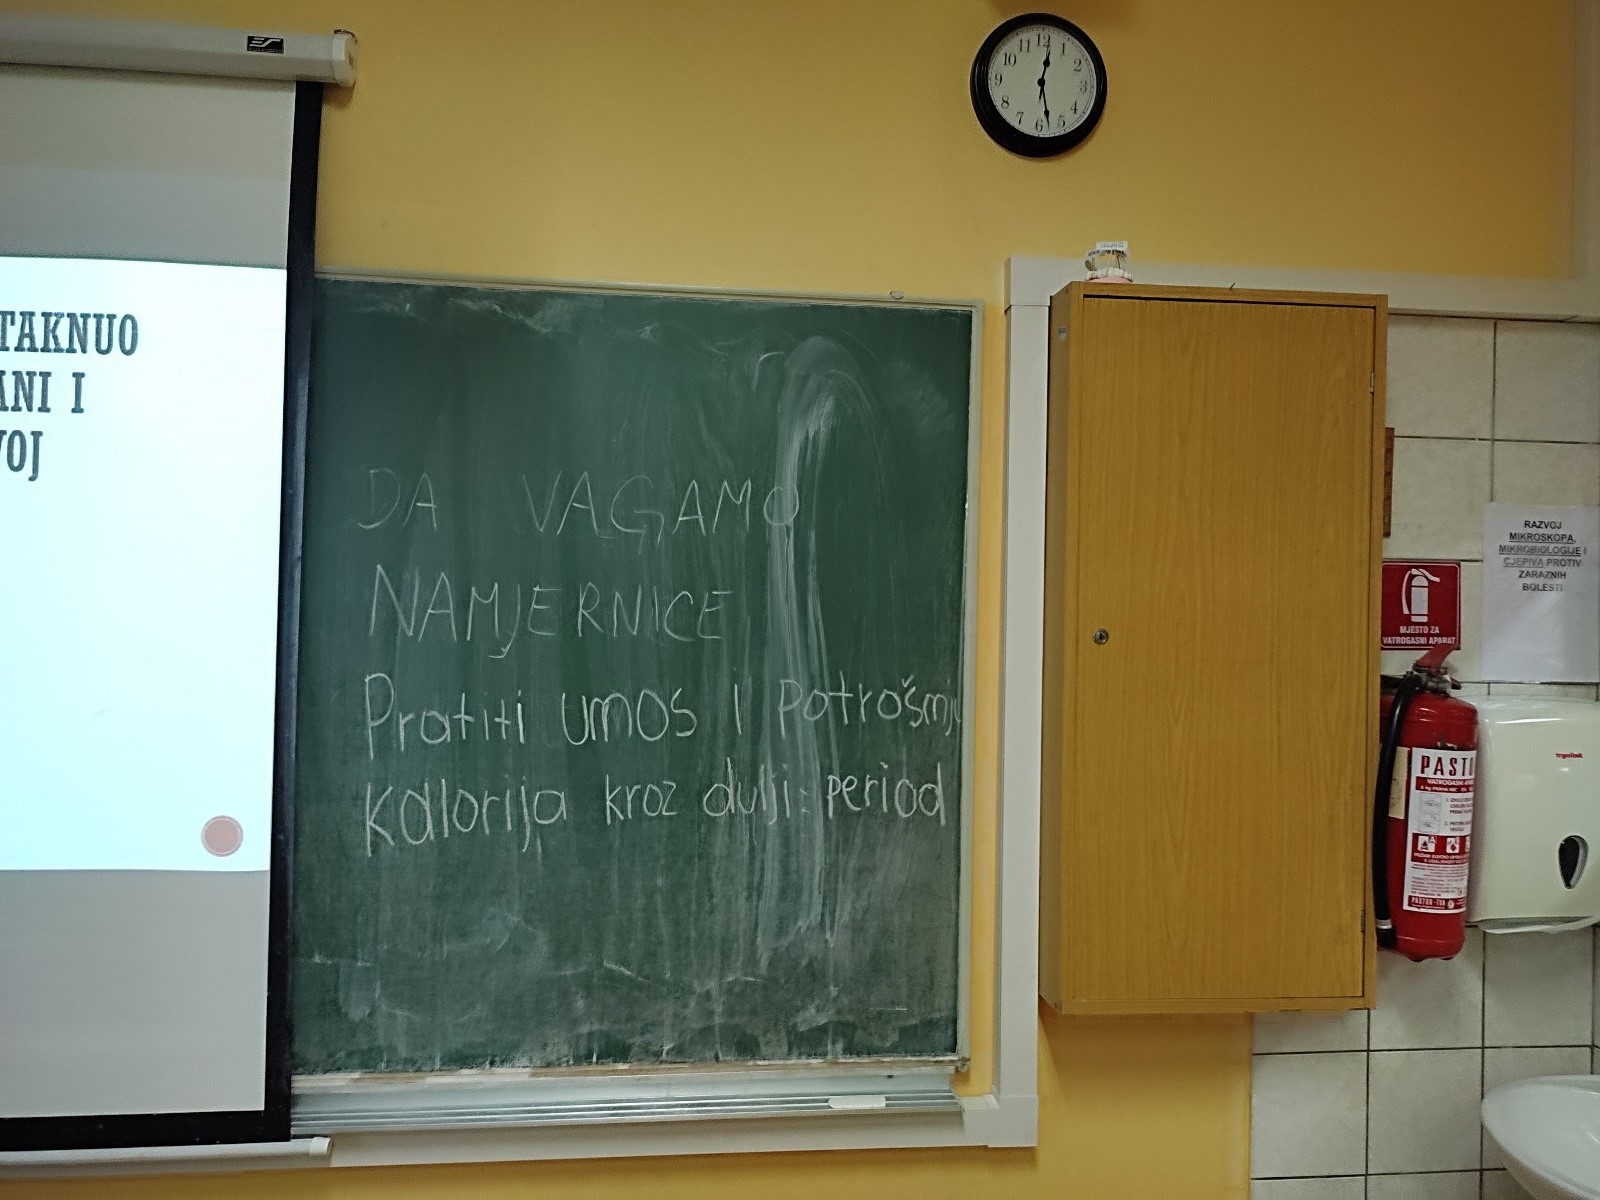 TAKNUO
ANI I
VOJ
12
1
2
3
4
5
6
7
8
9
10
11
DA VAGAMO
NAMJERNICE
Pratiti umos I potrošmju
kalorija kroz dulji period
RAZVOJ
MIKROSKOPA,
MIKROBIOLOGIJE I
CJEPIVA PROTIV
ZARAZNIH
BOLESTI
MJESTO ZA
VATROGASNI APARAT
PASTOR
VATROGASNI
PASTOR-TVA